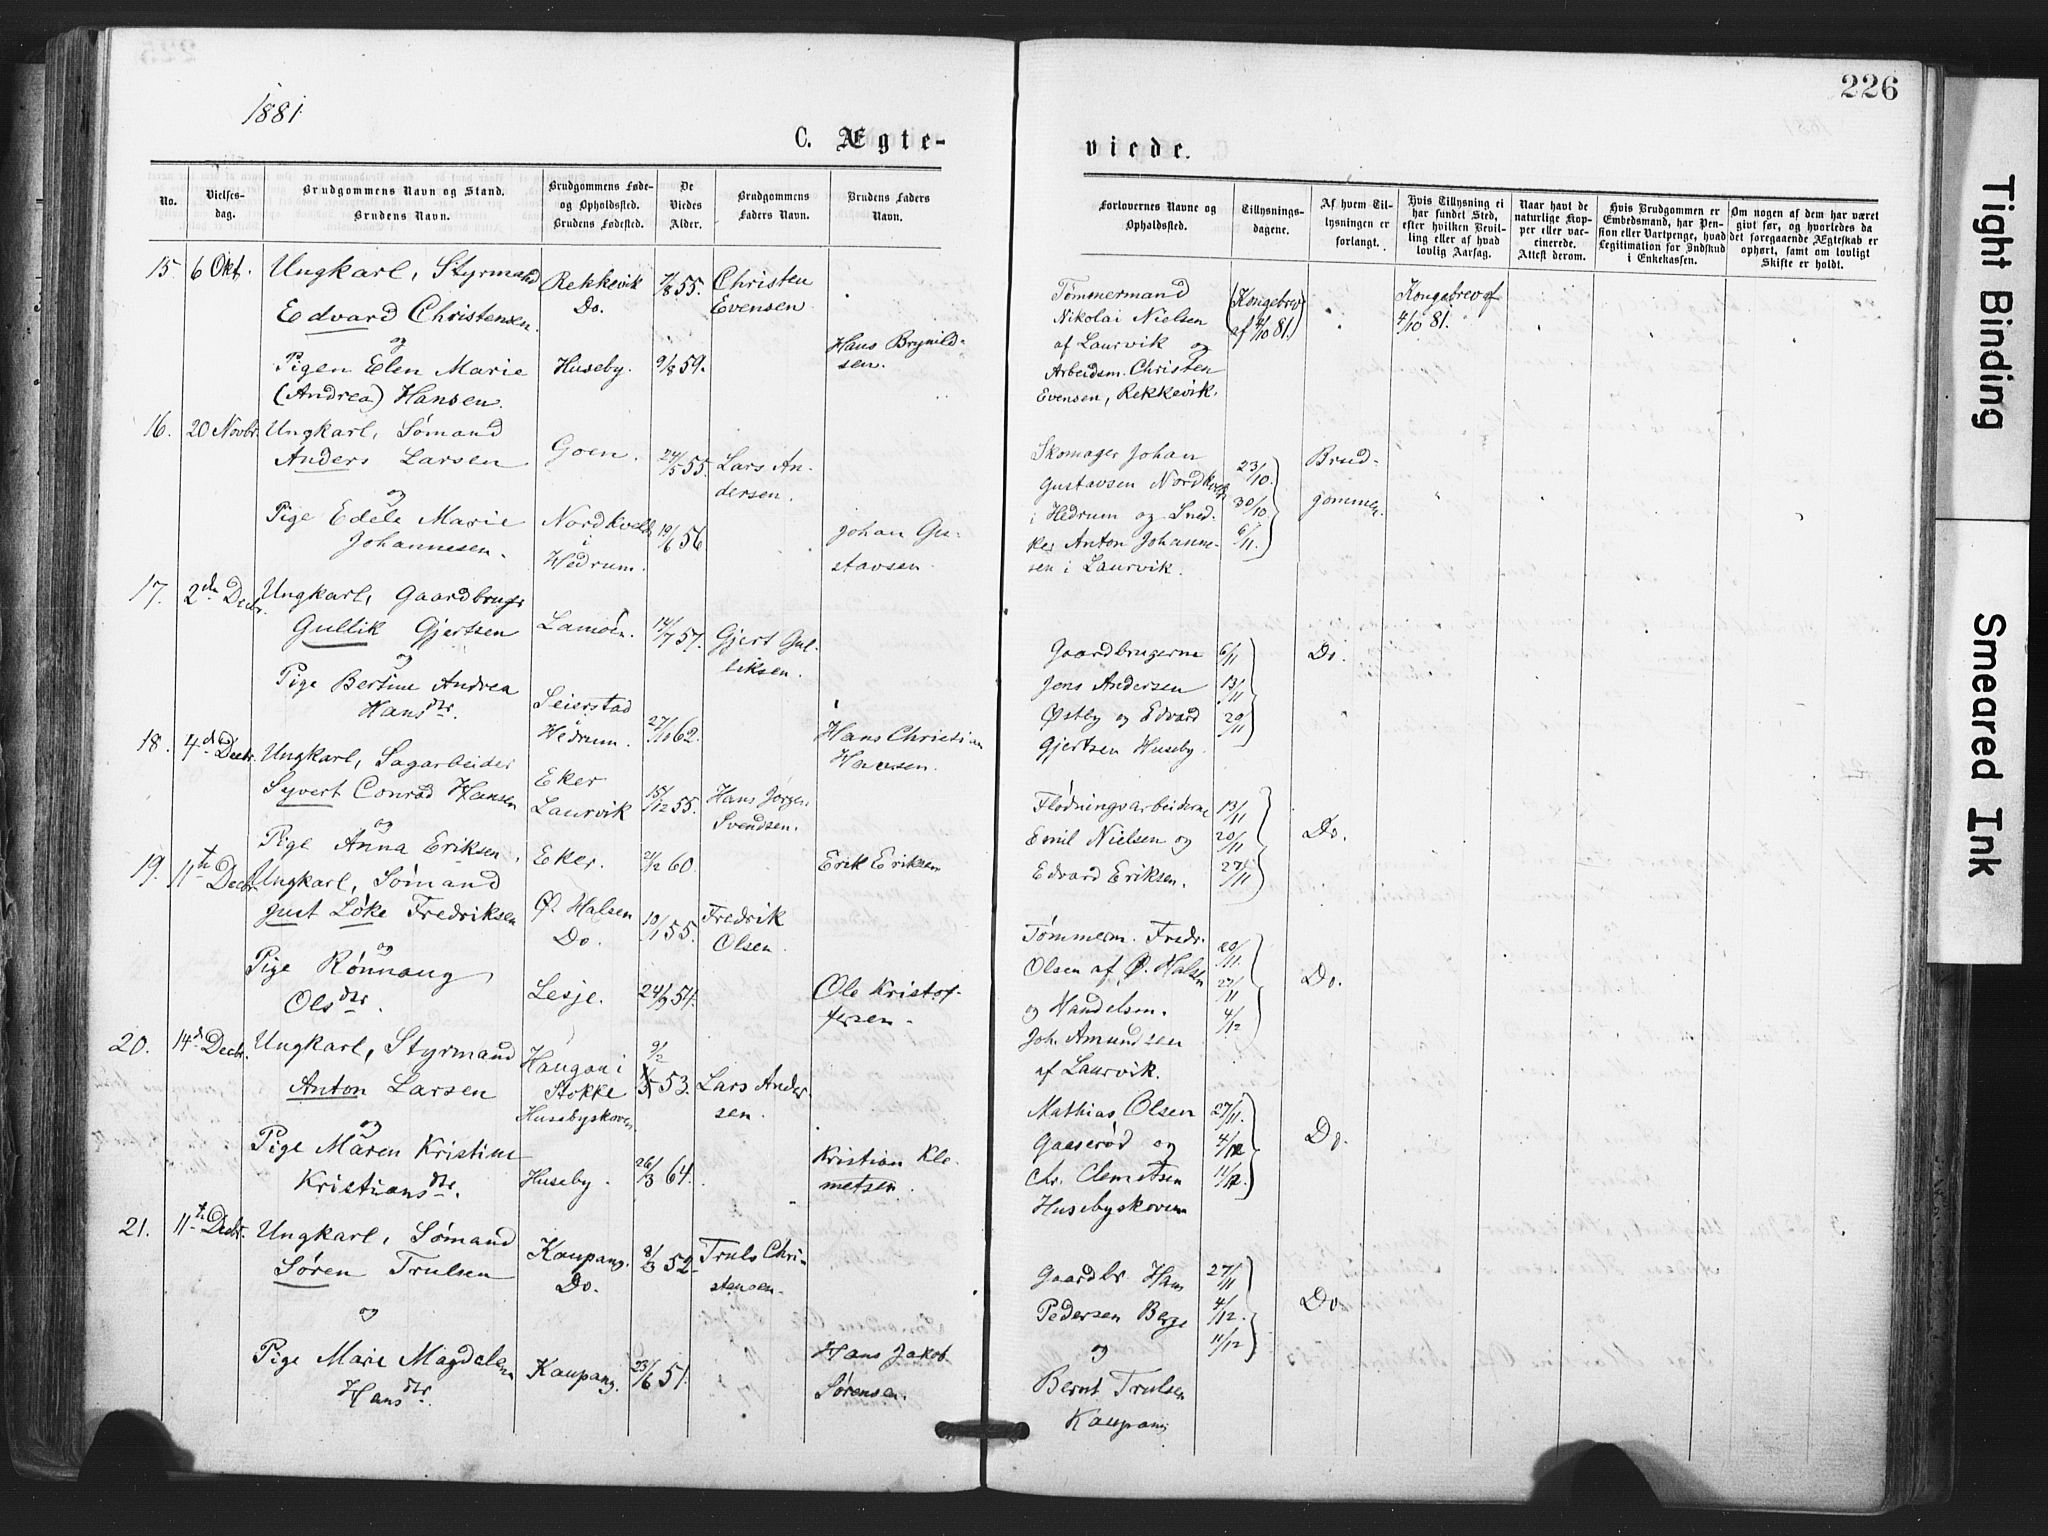 1881
226
C. Ægte-
viede.
No.
Vielses-
dag.
Brudgommens Navn og Stand.
Brudens Navn.
Brudgommens Føde-
og Opholdssted.
Brudens Fødested.
De
Viedes
Alder.
Brudgommens
Faders Navn.
Brudens Faders
Navn.
Forlovernes Navne og
Opholdssted.
Tillysnings-
dagene.
Af hvem Til-
lysningen er
forlangt.
Hvis Tillysning ei
har fundet Sted,
efter hvilken Bevil-
ling eller af hvad
lovlig Aarsag.
Naar havt de
naturlige Kop-
per eller vac-
cinerede.
Attest derom.
Hvis Brudgommen er
Embedsmand, har Pen-
sion eller Vartpenge, hvad
Legitimation for Indskud
i Enkekassen.
Om nogen af dem har været
givt før, og hvorledes da
det foregaaende Ægteskab er
ophørt, samt om lovligt
Skifte er holdt.
15. 6 Okt. Ungkarl, Styrmand
Edvard Christensen
og
Pigen Elen Marie
(Andrea) Hansen.
Rekkevik
Do.
Huseby.
7/8 55.
9/8 59.
Christen
Evensen
Hans Brynild-
sen.
Tømmermand
Nikolai Nielsen
af Laurvik og
Arbeidsm. Christen
Evensen, Rekkevik.
(Kongebrev
af 4/10 81.)
Kongebrev af
4/10 81.
16. 20 Novbr. Ungkarl, Sømand
Anders Larsen
og
Pige Edele Marie
Johannesen.
Goen.
Nordkveld
i
Hedrum.
24/5 55.
19/6 56
Lars An-
dersen.
Johan Gu-
stavsen.
Skomager Johan
Gustavsen Nordkveld
i Hedrum og Sned-
ker Anton Johanne-
sen i Laurvik.
23/10.
30/10
6/11.
Brud-
gommen.
17. 2den Decbr. Ungkarl, Gaardbruger
Gullik Gjertsen
og
Pige Bertine Andrea
Hansdtr.
Lamøen.
Seierstad
Hedrum.
14/7 57.
27/10 62.
Gjert Gul-
liksen.
Hans Christian
Hansen.
Gaardbrugerne
Jens Andersen
Østby og Edvard
Gjertsen Huseby.
6/11
13/11
20/11
Do.
18. 4de Decbr. Ungkarl, Sagarbeider
Syvert Conrad Hansen
og
Pige Anna Eriksen,
Eker
Laurvik
Eker.
15/12 55.
21/2 60
Hans Jørgen
Svendsen.
Erik Eriksen
Flødningsarbeiderne
Emil Nielsen og
Edvard Eriksen.
13/11
20/11
27/11
Do.
19. 11te Decbr. Ungkarl, Sømand
Just Løke Fredriksen
og
Pige Rønnaug
Olsdtr.
Ø. Halsen
Do.
Lesje.
10/1 55.
24/9 54.
Fredrik
Olsen.
Ole Kristof-
fersen.
Tømmerm. Fredr.
Olsen af Ø. Halsen
og Handelsm.
Joh. Amundsen
af Laurvik.
20/11.
27/11
4/12
Do.
20. 14de Decbr. Ungkarl, Styrmand
Anton Larsen
og
Pige Maren Kristine
Kristiansdtr.
Haugan i
Stokke
Husebyskoven
Huseby.
9/2 53.
26/3 64.
Lars Ander-
sen.
Kristian Kle-
metsen.
Mathias Olsen
Gaaserød og
Chr. Clemetsen
Husebyskoven
27/11.
4/12
11/12.
Do.
21. 11te Decbr. Ungkarl, Sømand
Søren Trulsen
og
Pige Marie Magdelena
Hansdtr.
Kaupang.
Do.
Kaupang.
8/3 52.
23/6 51.
Truls Chri-
stensen.
Hans Jakob
Sørensen.
Gaardbr. Hans
Pedersen Berge
og
Bernt Trulsen
Kaupang
27/11
4/12.
11/12
Do.
Tight Binding
Smeared Ink